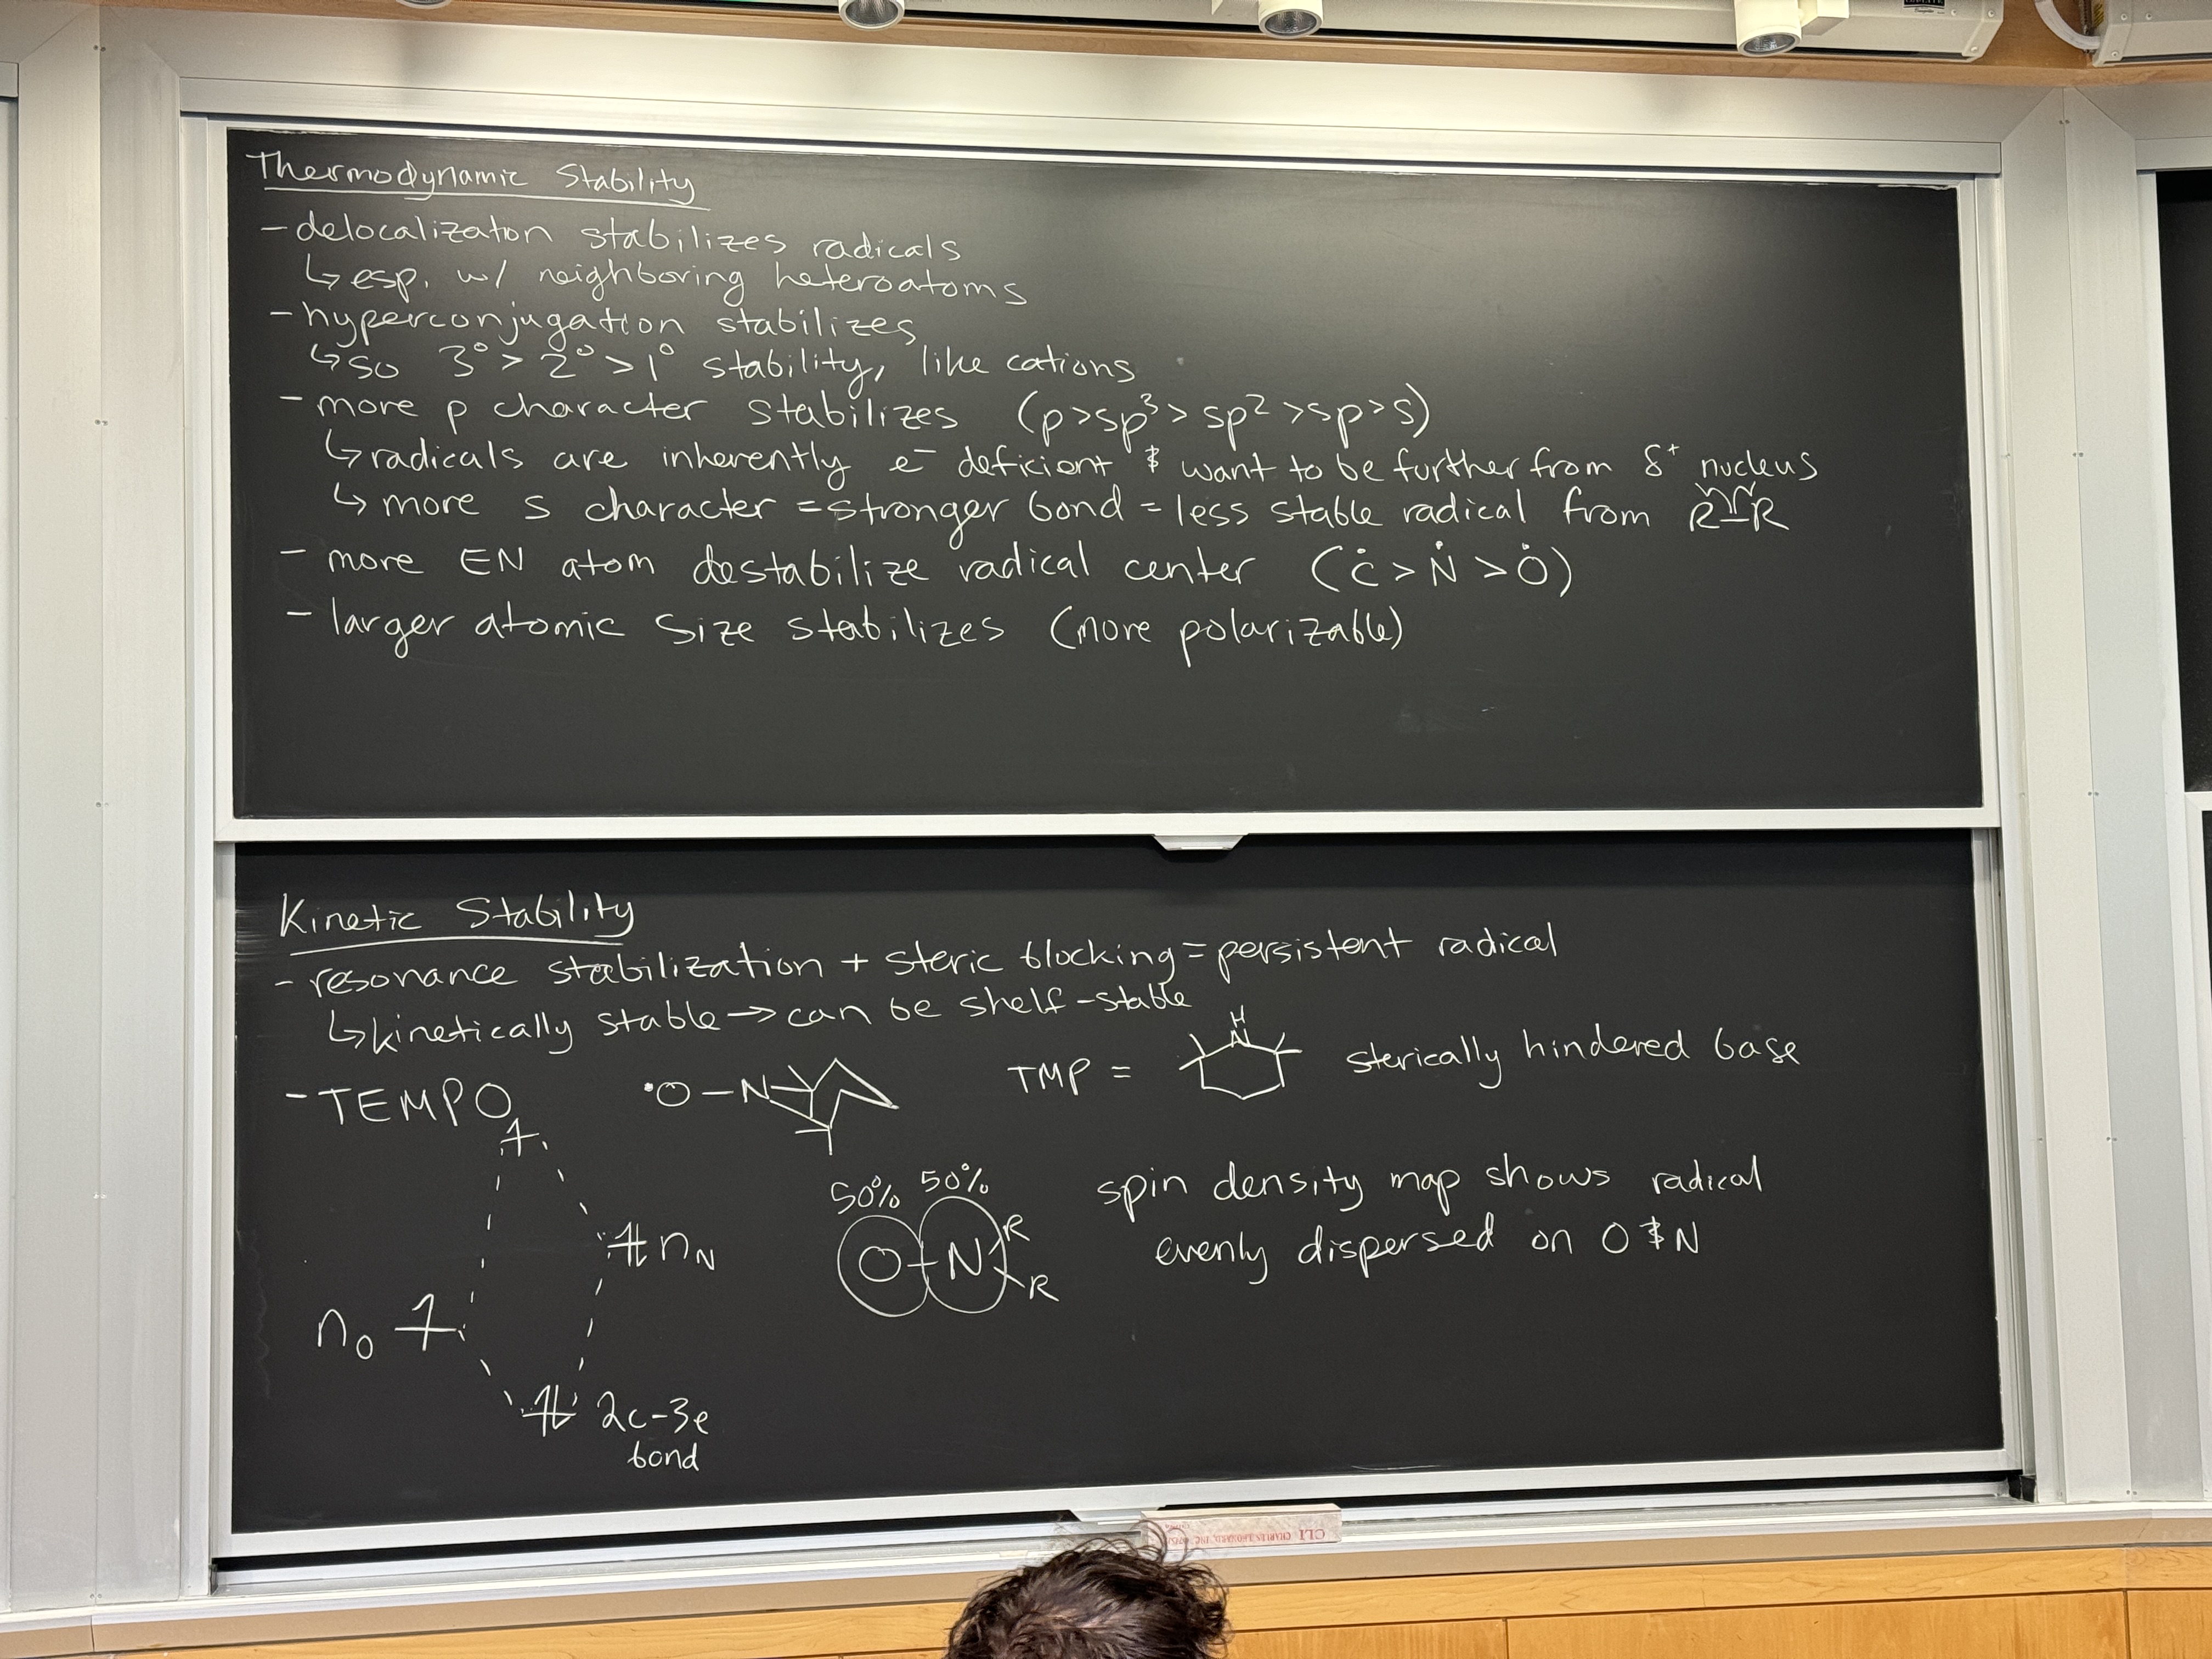 Thermodynamic Stability
- delocalization stabilizes radicals
↳ esp. w/ neighboring heteroatoms
- hyperconjugation stabilizes
↳ so 3° > 2° > 1° stability, like cations
- more p character stabilizes (p > sp³ > sp² > sp > s)
↳ radicals are inherently e⁻ deficient & want to be further from δ⁺ nucleus
↳ more s character = stronger bond = less stable radical from R–R
- more EN atom destabilize radical center (Ċ > Ṅ > Ȯ)
- larger atomic size stabilizes (more polarizable)
Kinetic Stability
- resonance stabilization + steric blocking = persistent radical
↳ kinetically stable → can be shelf-stable
- TEMPO
•O–N
TMP =
H
N
sterically hindered base
50% 50%
O–N
R
R
spin density map shows radical
evenly dispersed on O & N
n_N
n_O
2c-3e
bond
CLI CHARLES LEONARD, INC.